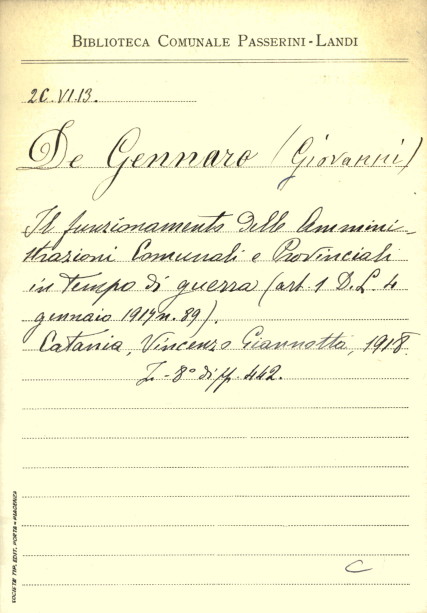 BIBLIOTECA COMUNALE PASSERINI-LANDI
2C.VI.13.
De Gennaro (Giovanni)
Il funzionamento delle Ammini-
strazioni Comunali e Provinciali
in tempo di guerra (art. 1 D.L. 4
gennaio 1917 n. 89).
Catania, Vincenzo Giannotta, 1918
8° di pp. 442.
C
SOCIETÀ TIP. EDIT. PORTA - PIACENZA